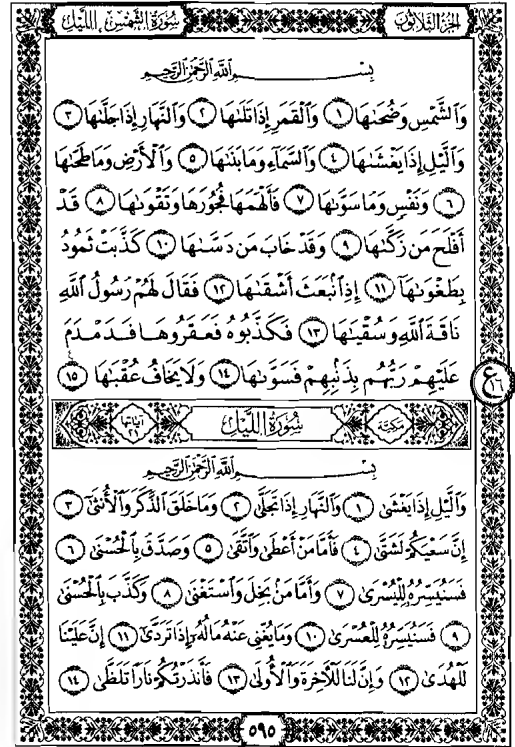 سُورَةُ الشَّمْسِ ، اللَّيْلِ
الجُزْءُ الثَّلَاثُونَ
بِسْمِ اللَّهِ الرَّحْمَٰنِ الرَّحِيمِ
وَالشَّمْسِ وَضُحَىٰهَا ١ وَالْقَمَرِ إِذَا تَلَىٰهَا ٢ وَالنَّهَارِ إِذَا جَلَّىٰهَا ٣
وَالَّيْلِ إِذَا يَغْشَىٰهَا ٤ وَالسَّمَآءِ وَمَا بَنَىٰهَا ٥ وَالْأَرْضِ وَمَا طَحَىٰهَا
٦ وَنَفْسٍ وَمَا سَوَّىٰهَا ٧ فَأَلْهَمَهَا فُجُورَهَا وَتَقْوَىٰهَا ٨ قَدْ
أَفْلَحَ مَن زَكَّىٰهَا ٩ وَقَدْ خَابَ مَن دَسَّىٰهَا ١٠ كَذَّبَتْ ثَمُودُ
بِطَغْوَىٰهَآ ١١ إِذِ انۢبَعَثَ أَشْقَىٰهَا ١٢ فَقَالَ لَهُمْ رَسُولُ اللَّهِ
نَاقَةَ اللَّهِ وَسُقْيَٰهَا ١٣ فَكَذَّبُوهُ فَعَقَرُوهَا فَدَمْدَمَ
عَلَيْهِمْ رَبُّهُم بِذَنۢبِهِمْ فَسَوَّىٰهَا ١٤ وَلَا يَخَافُ عُقْبَٰهَا ١٥
ع ١٦
مكية سُورَةُ اللَّيْلِ آياتها ٢١
بِسْمِ اللَّهِ الرَّحْمَٰنِ الرَّحِيمِ
وَالَّيْلِ إِذَا يَغْشَىٰ ١ وَالنَّهَارِ إِذَا تَجَلَّىٰ ٢ وَمَا خَلَقَ الذَّكَرَ وَالْأُنثَىٰٓ ٣
إِنَّ سَعْيَكُمْ لَشَتَّىٰ ٤ فَأَمَّا مَنْ أَعْطَىٰ وَاتَّقَىٰ ٥ وَصَدَّقَ بِالْحُسْنَىٰ ٦
فَسَنُيَسِّرُهُۥ لِلْيُسْرَىٰ ٧ وَأَمَّا مَنۢ بَخِلَ وَاسْتَغْنَىٰ ٨ وَكَذَّبَ بِالْحُسْنَىٰ
٩ فَسَنُيَسِّرُهُۥ لِلْعُسْرَىٰ ١٠ وَمَا يُغْنِى عَنْهُ مَالُهُۥٓ إِذَا تَرَدَّىٰٓ ١١ إِنَّ عَلَيْنَا
لَلْهُدَىٰ ١٢ وَإِنَّ لَنَا لَلْآخِرَةَ وَالْأُولَىٰ ١٣ فَأَنذَرْتُكُمْ نَارًا تَلَظَّىٰ ١٤
٥٩٥